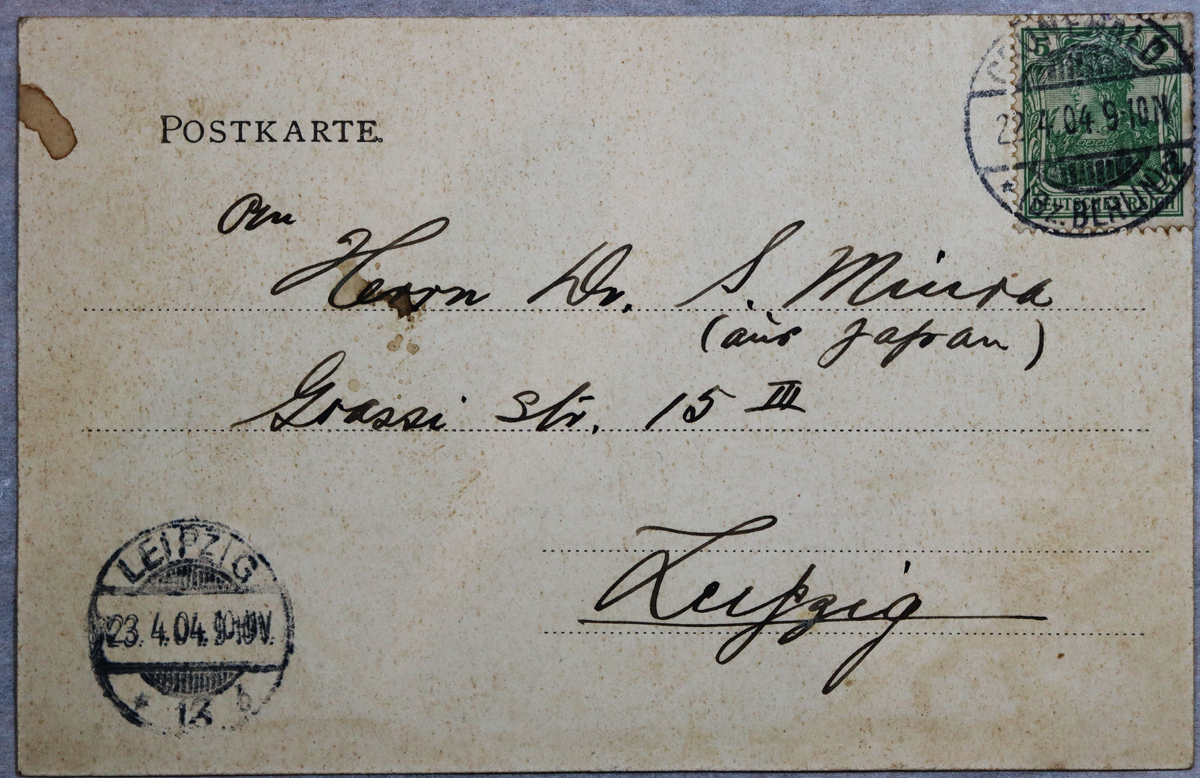 POSTKARTE.
5
GRUNEWALD
4.04. 9-10N
* (BZ. BERLIN)
DEUTSCHES REICH
An
Herrn Dr. S. Miura
(aus Japan)
Grassi Str. 15 III
Leipzig
LEIPZIG
23.4.04. 9-10V.
* 13 b